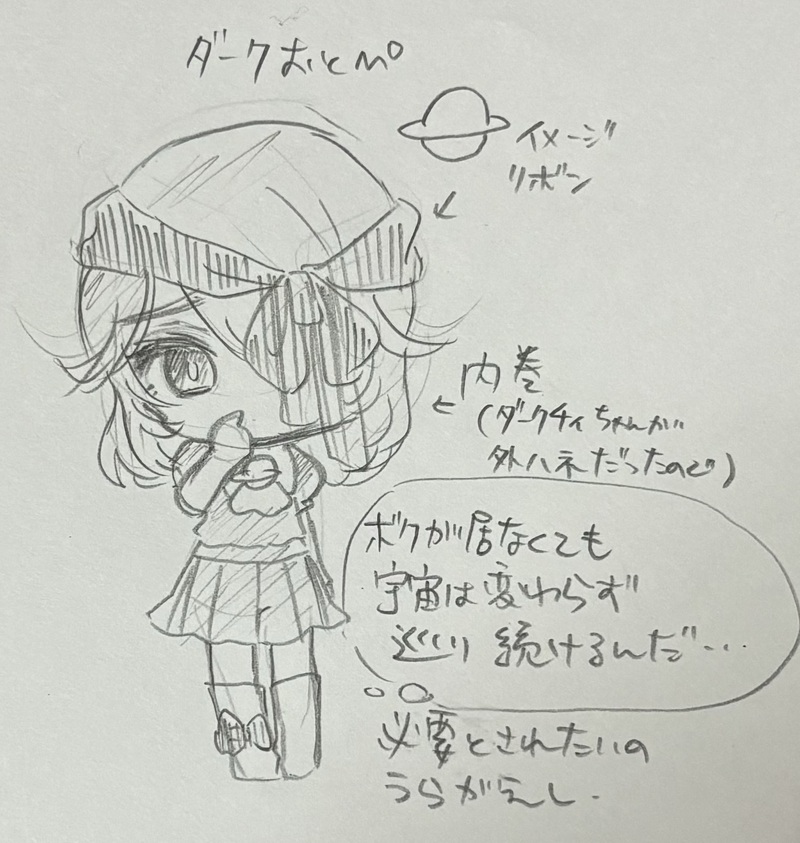 ダークおとめ
イメージ
リボン
内巻
(ダークチィちゃんが
外ハネだったので)
ボクが居なくても
宇宙は変わらず
巡り続けるんだ…
必要とされたいの
うらがえし.